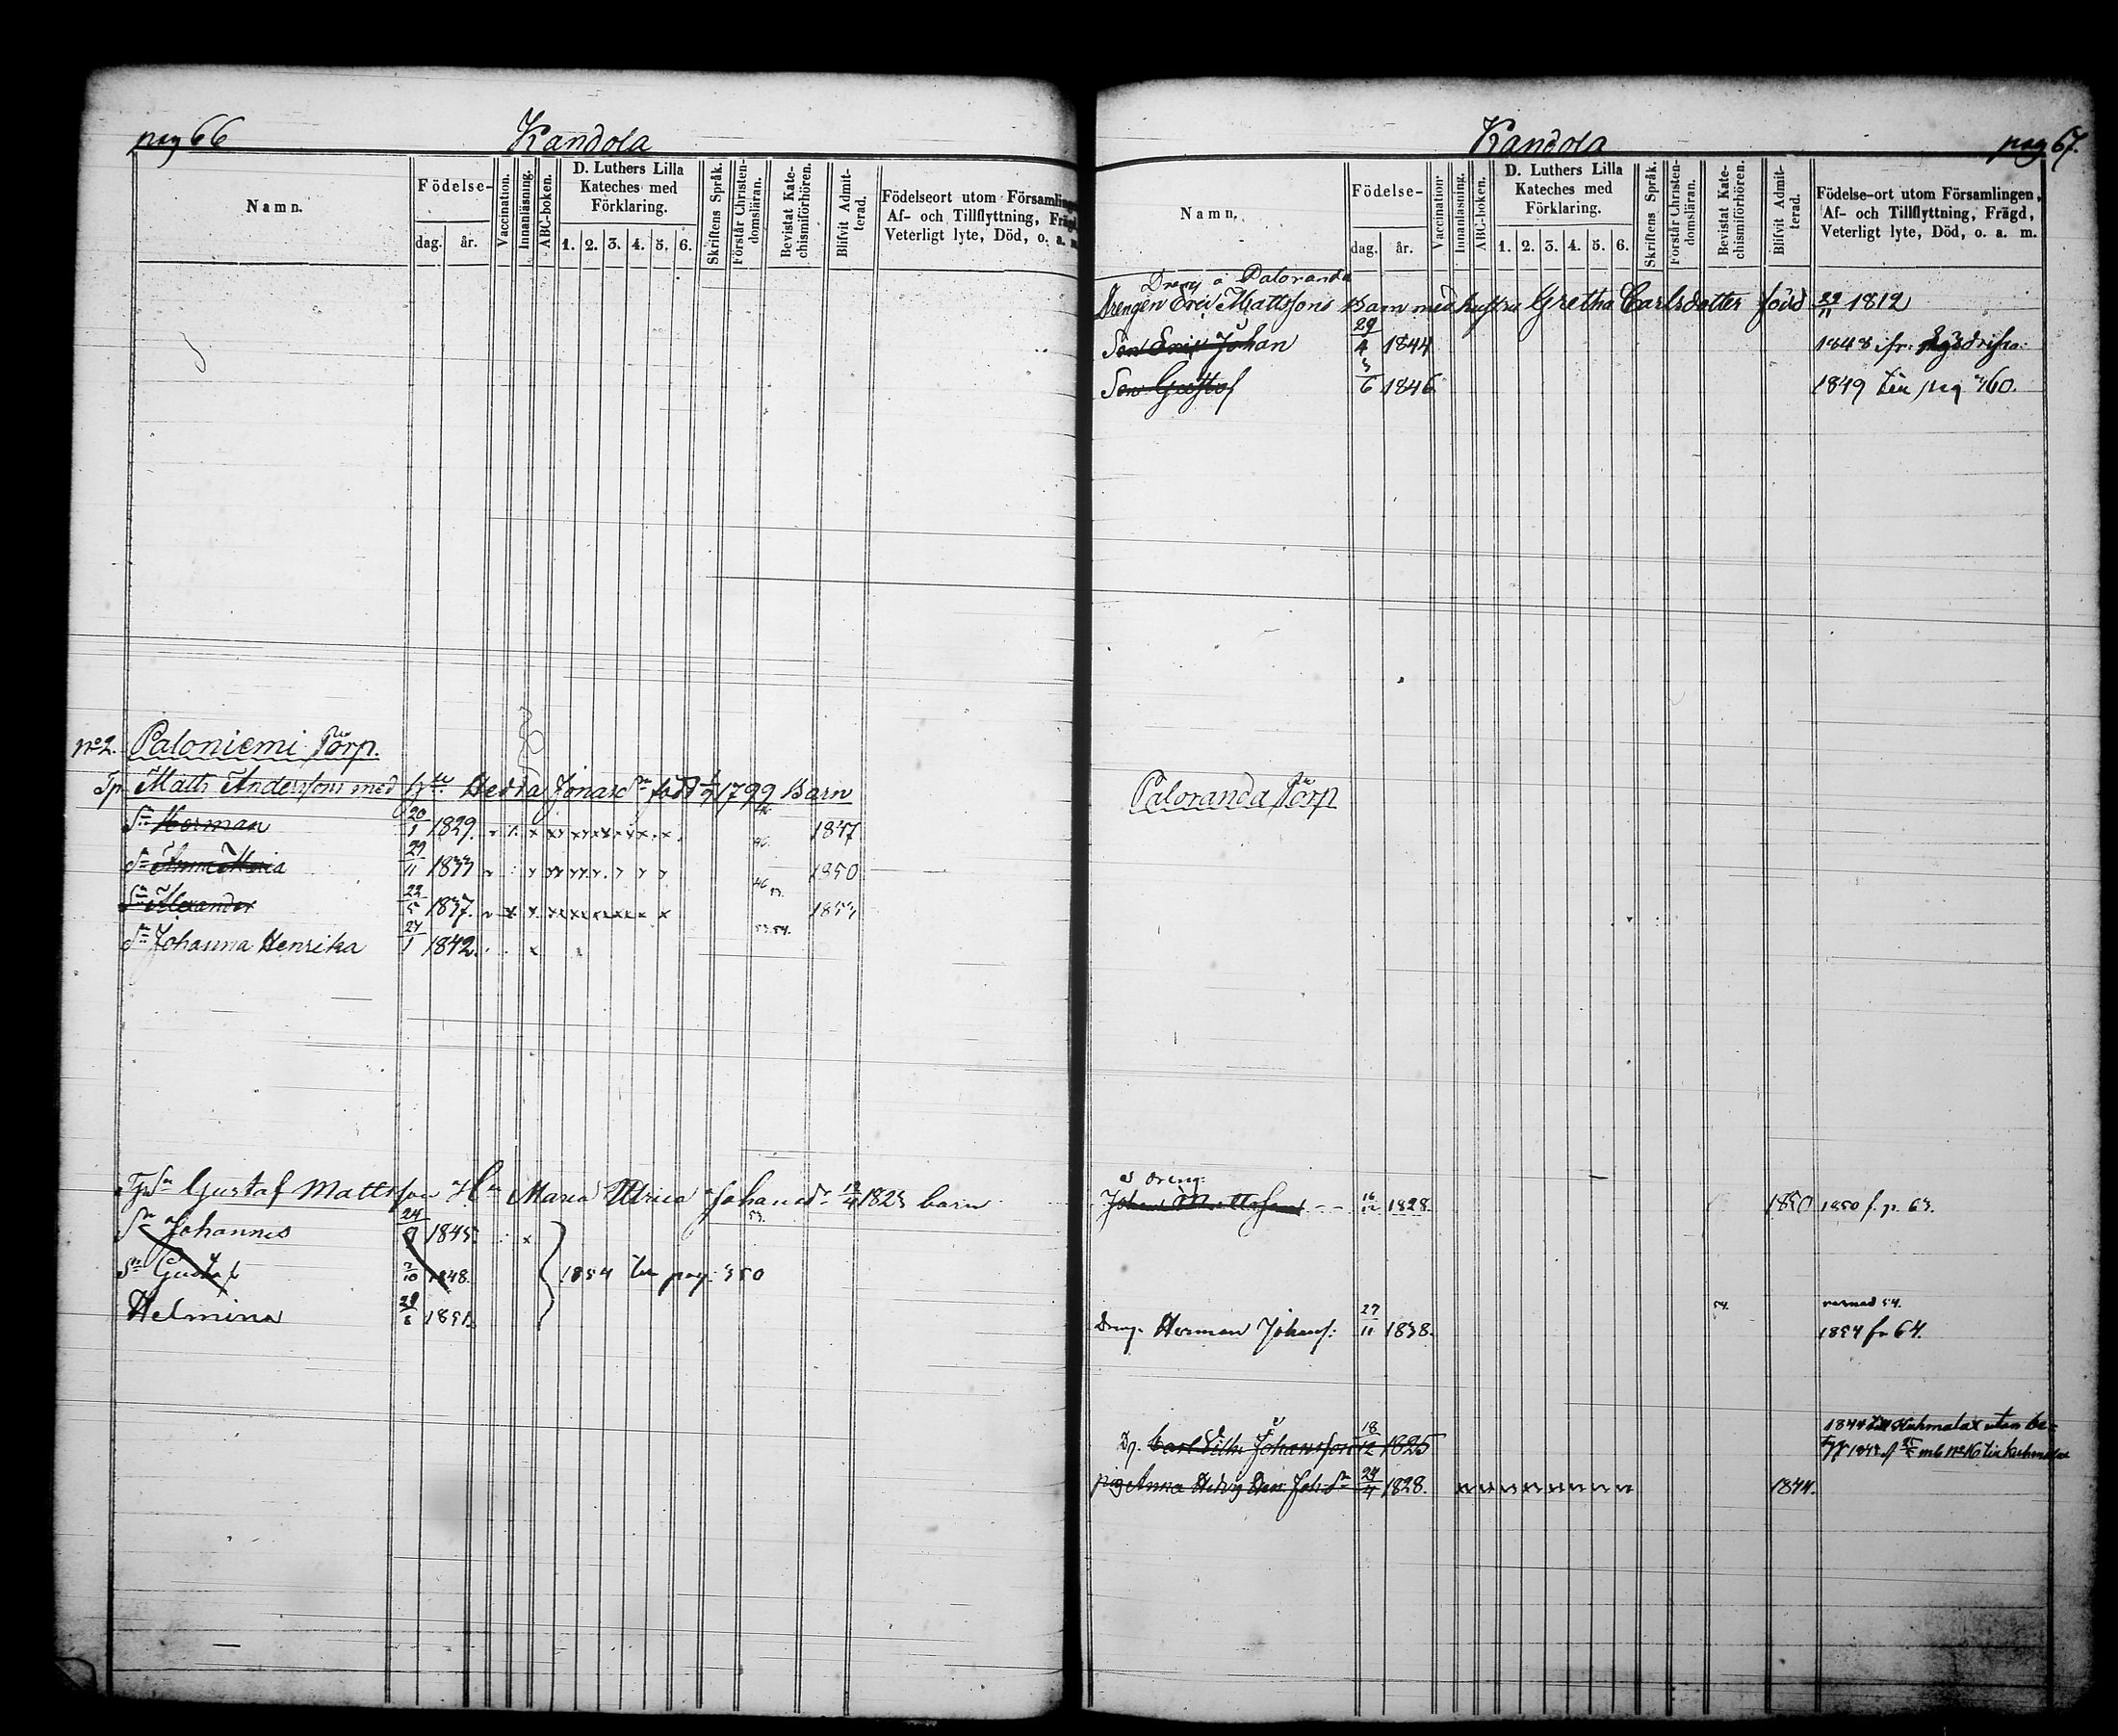 pag 66 Kandola
Namn. Födelse- dag. år. Vaccination. Innanläsning. ABC-boken. D. Luthers Lilla Kateches med Förklaring. 1. 2. 3. 4. 5. 6. Skriftens Språk. Förstår Christen-domsläran. Bevistat Kate-chismiförhören. Blifvit Admit-terad. Födelseort utom Församling Af- och Tillflyttning, Frägd Veterligt lyte, Död, o. a. m
No 2. Paloniemi Torp.
Tp Matts Anderssons med Hedda Jonasd:r född 1799 Barn
Sn Herman 20/1 1829. 46. 1847
Anna Maria 29/11 1833 46. 1850
Sn Alexander 22/5 1837. 46 53. 1853
Johanna Henrika 24/1 1842. 53.54.
TpSn Gustaf Mattsson Hu Maria Ulrica Johansdr 12/4 1823 barn
Sn Johannes 24/9 1845. 53.
Sn Gustaf 2/10 1848. 1854 till pag. 350
Helmina 1851.
Kandola pag 67.
Namn. Födelse- dag. år. Vaccination. Innanläsning. ABC-boken. D. Luthers Lilla Kateches med Förklaring. 1. 2. 3. 4. 5. 6. Skriftens Språk. Förstår Christen-domsläran. Bevistat Kate-chismiförhören. Blifvit Admit-terad. Födelse-ort utom Församlingen, Af- och Tillflyttning, Frägd, Veterligt lyte, Död, o. a. m.
Dreng å Paloranda
Drengen Eric Mattssons Barn med hustru Gretha Carlsdotter född 1812
Son Eric Johan 29/4 1844 1848
Son Gustaf 3/6 1846 1849 till pag 360.
Paloranda Torp
Dreng.
Johan Mattsson 16/12 1828. 1850 1850 f. p. 63.
Dreng. Herman Johanss: 27/11 1838. 54. 54.
1854 fr 64.
1844 till Kuhmalax utan be-
Dg. Carl Vilh: Johansson 18/12 1825 till Kuhmalax
pig Anna Hedvig 1828. 1844.